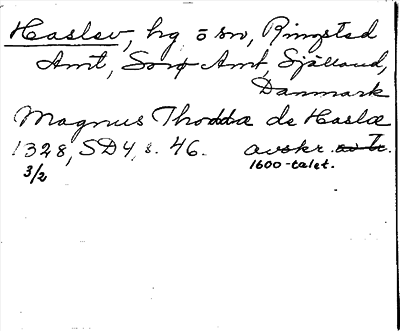 Haslev, hg ō sn, Ringsted
Amt, Sorø Amt, Själland,
Danmark
Magnus Thoddæ de Haslæ
1328, SD4, s. 46. avskr. av Tr.
3/2 1600-talet.